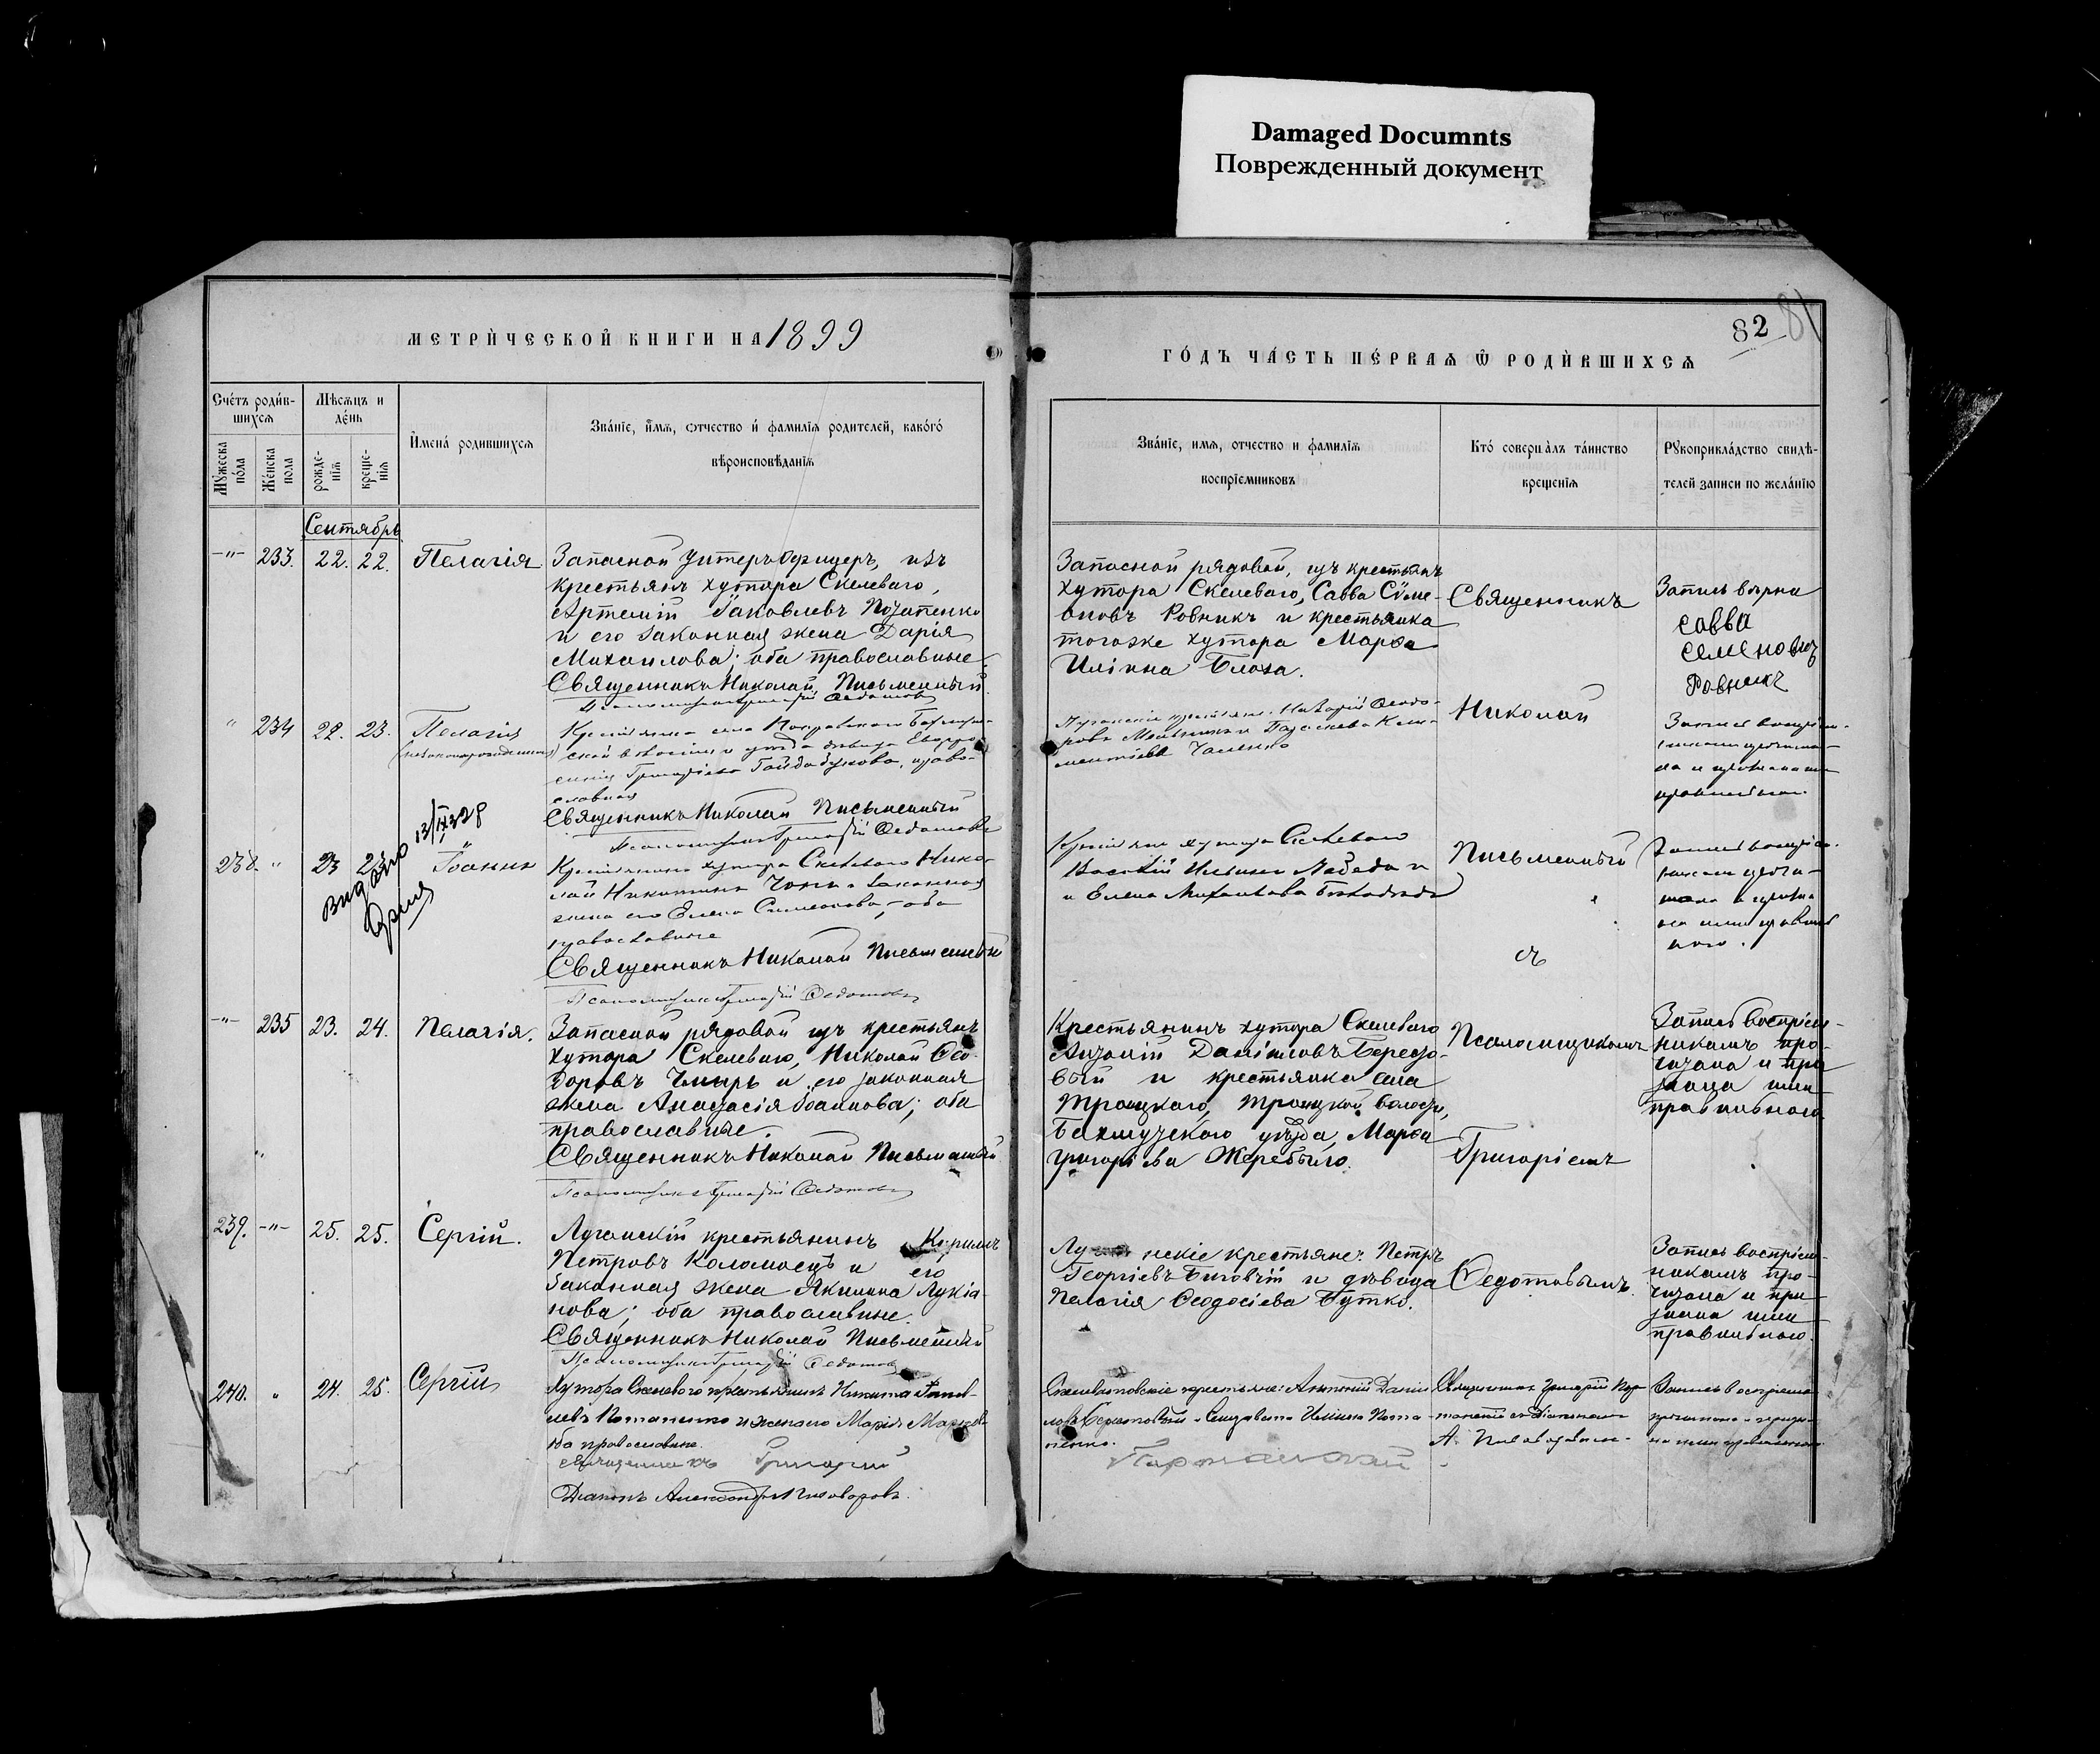 Damaged Documnts
Поврежденный документ
МЕТРИ́ЧЕСКОЙ КНИГИ НА 1899
ГО́ДЪ ЧА́СТЬ ПЕ́РВАѦ Ѿ РОДИ́ВШИХСѦ
82
81
Сче́тъ роди́в-
шихсѧ
Мѣсѧцъ и
де́нь
Имена́ родившихсѧ
Зва́нїе, и́мѧ, ѻтчество и́ фамилїѧ родителей, како́гѡ
вѣроисповѣданїѧ
Мꙋжеска
по́ла
Же́нска
пола
рожде-
нїѧ
креще-
нїѧ
Зва́нїе, имѧ, отчество и фамилїѧ
воспрїемниковъ
Кто́ соверша̀лъ та́инство
крещенїѧ
Рꙋкоприкла́дство свидѣ-
телей записи по жела́нїю
Сентябрь
-"- 233. 22. 22. Пелагія
Запасной Унтеръ офицеръ, изъ
крестьянъ хутора Скелеваго,
Артемій Іаковлевъ Потапенко
и его законная жена Дарія
Михаилова; оба православные.
Священникъ Николай Письменный.
Псаломщикъ Григорій Федотовъ
Запасной рядовой, изъ крестьянъ
хутора Скелеваго, Савва Симе-
оновъ Ровникъ и крестьянка
тогоже хутора Марѳа
Иліина Блоха.
Священникъ
Запись вѣрна
Савва
Семеновъ
Ровникъ
" 234 22. 23. Пелагія
(незаконнорожденная)
Крестьянка села Покровскаго Бахмут-
ской волости и уѣзда дѣвица Евдо-
Григоріева, право-
славная
Священникъ Николай Письменный
Псаломщикъ Григорій Федотовъ
Луганскіе крестьяне: Ѳеодо-
ровъ Мельникъ и Параскева Кли-
ментіева
Николай
Запись воспріем-
никами прочита-
на и признана
правильною.
Видано 13/IX 328
238. " 23 23 Іоаннъ
Крестьянинъ хутора Скелеваго Нико-
лай Никитинъ и законная
жена его Елена Симеонова, оба
православные
Священникъ Николай Письменный
Псаломщикъ Григорій Федотовъ
Крестьяне хутора Скелеваго
Василій Ильинъ Лебедь и
и Елена Михаилова
Письменный
съ
Запись воспріем-
никами прочи-
тана и призна
на ими правиль
ною.
-"- 235 23. 24. Пелагія.
Запасной рядовой изъ крестьянъ
хутора Скелеваго, Николай Ѳео-
доровъ и его законная
жена Анастасія Іоаннова; оба
православные.
Священникъ Николай Письменный
Псаломщикъ Григорій Федотовъ
Крестьянинъ хутора Скелеваго
Антоній Даніиловъ Берестo-
вый и крестьянка села
Троицкаго, Троицкой волости,
Бахмутскаго уѣзда, Марѳа
Григоріева Жеребыло.
Псаломщикомъ
Григоріемъ
Запись воспріем-
никамъ про-
читана и при
знана ими
правильною
239. -"- 25. 25. Сергій.
Луганскій крестьянинъ Кириллъ
Петровъ Коломоецъ и его
законная жена Акилина Лукіа-
нова; оба православные.
Священникъ Николай Письменный
Псаломщикъ Григорій Федотовъ
Луганскіе крестьяне: Петръ
Георгіевъ и дѣвица
Пелагія Ѳеодосіева Бутко.
Федотовымъ.
Запись воспріем-
никамъ про-
читана и при
знана ими
правильною.
240. " 24. 25. Сергій
Хутора Скелеваго крестьянинъ Никита
левъ Потапенко и жена его Марія
оба православные.
священникъ Григорій
Діаконъ Александръ Пивоваровъ.
крестьяне: Антоній Даніи
ловъ Берестовый и Елизавета Иліина Пота-
пенко.
Священникъ Григорій
съ Діакономъ
А. Пивоваровымъ.
Запись воспріем
прочитана и призна-
на ими правильною